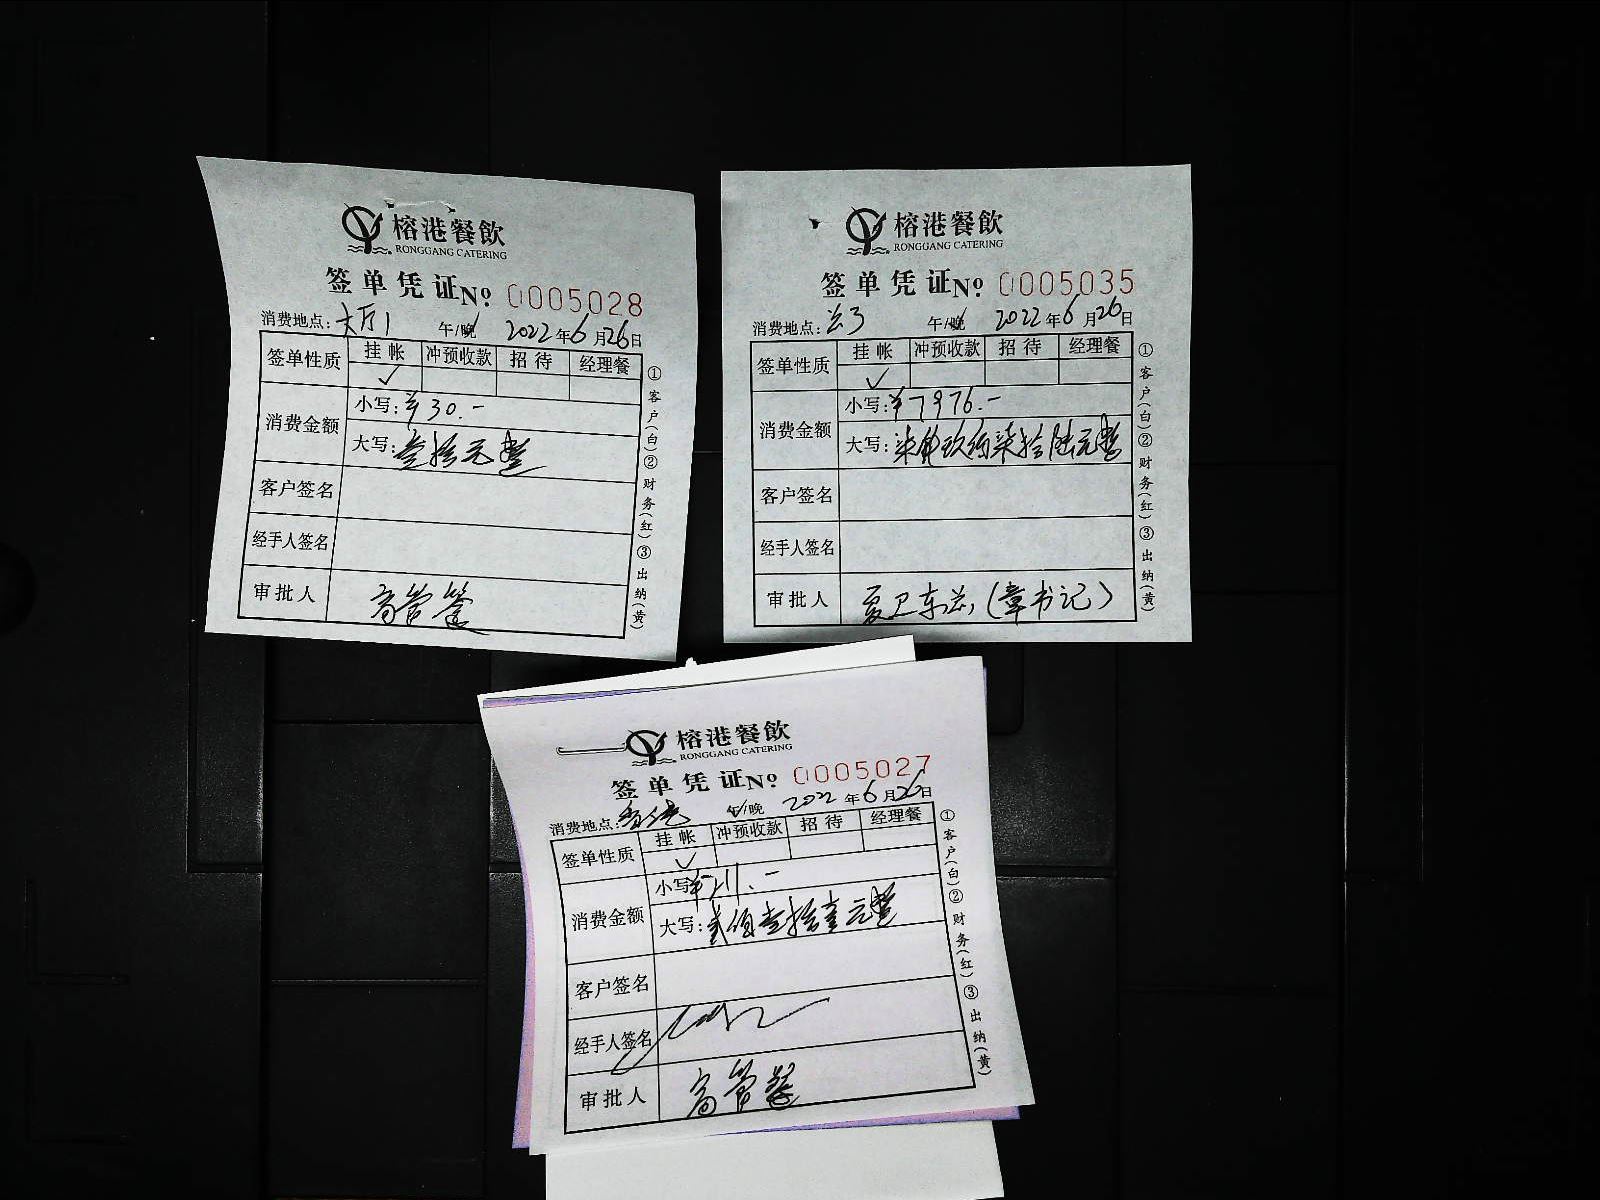 榕港餐飲
RONGGANG CATERING
签单凭证 No. 0005028
消费地点: 大厅1 午/晚 2022年6月26日
签单性质 挂帐 冲预收款 招待 经理餐
✓
消费金额 小写: ¥30.-
大写: 叁拾元整
客户签名
经手人签名
审批人 高管餐
①客户(白)②财务(红)③出纳(黄)
榕港餐飲
RONGGANG CATERING
签单凭证 No. 0005035
消费地点: 兰3 午/晚 2022年6月26日
签单性质 挂帐 冲预收款 招待 经理餐
✓
消费金额 小写: ¥7976.-
大写: 柒仟玖佰柒拾陆元整
客户签名
经手人签名
审批人 夏卫东总(章书记)
①客户(白)②财务(红)③出纳(黄)
榕港餐飲
RONGGANG CATERING
签单凭证 No. 0005027
消费地点: 午/晚 2022年6月26日
签单性质 挂帐 冲预收款 招待 经理餐
✓
消费金额 小写: ¥211.-
大写: 贰佰壹拾壹元整
客户签名
经手人签名
审批人 高管餐
①客户(白)②财务(红)③出纳(黄)